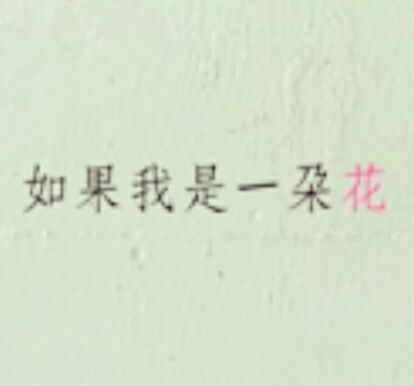 如果我是一朵花